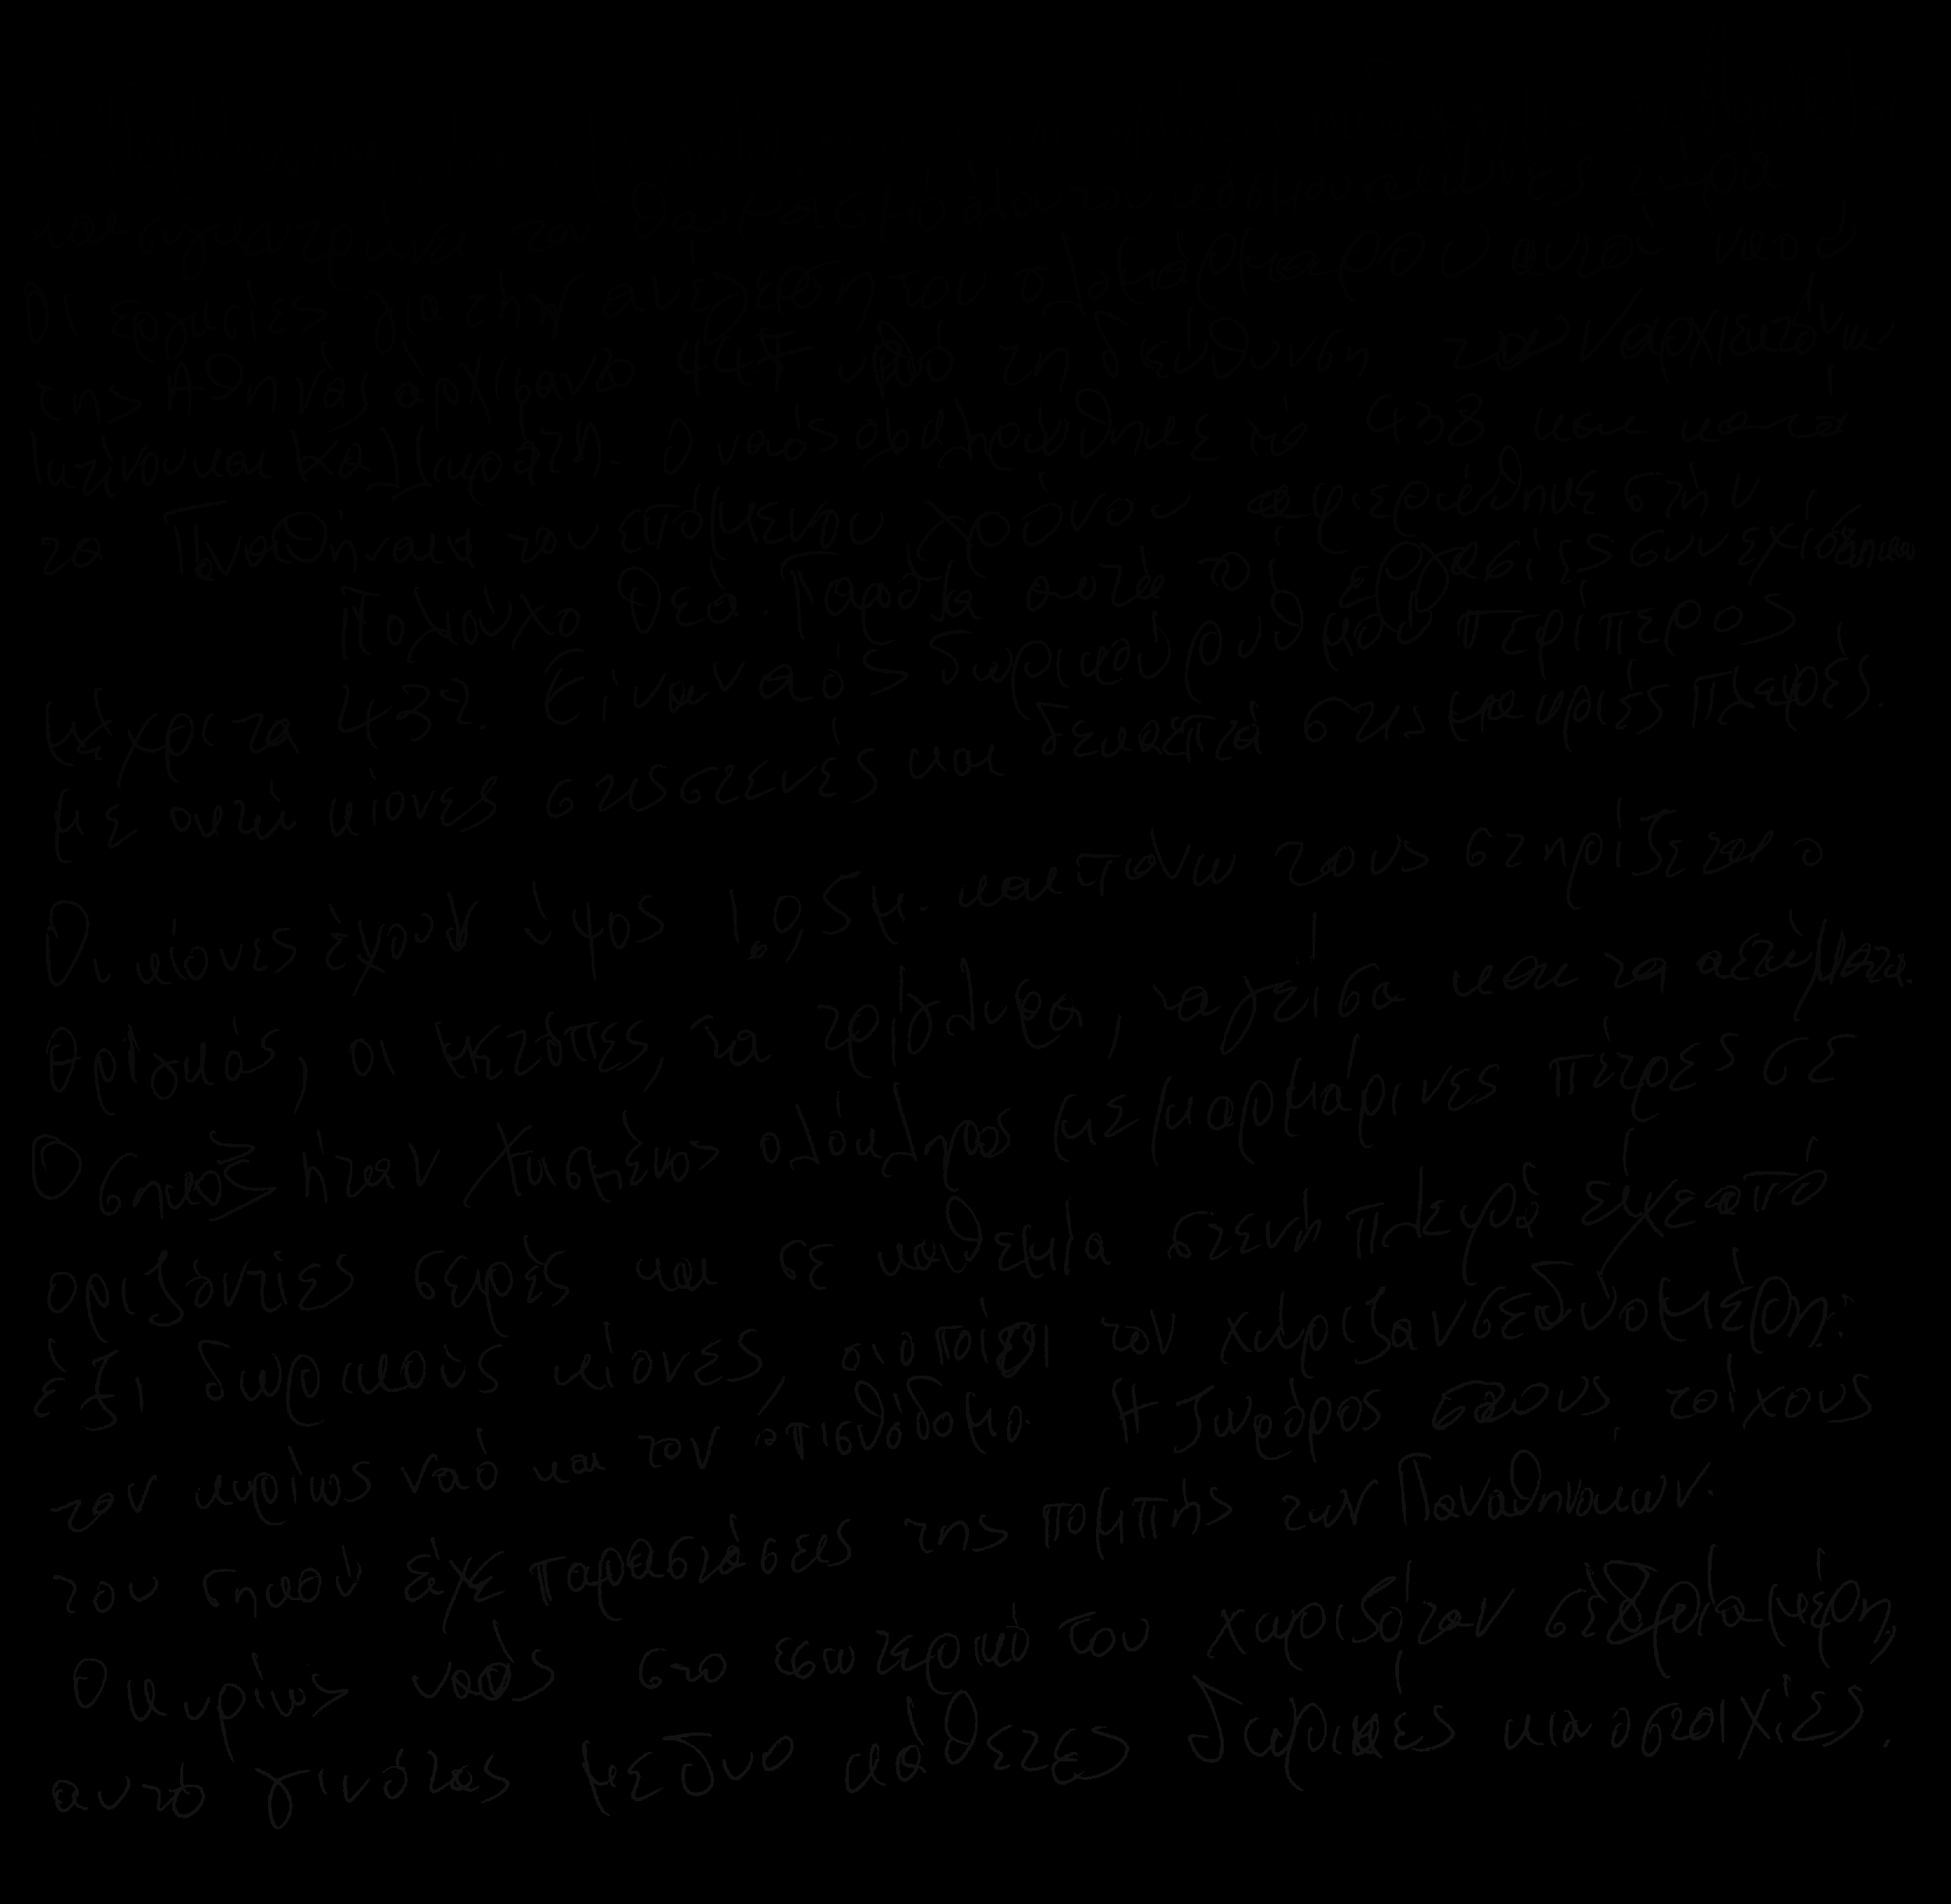 και συγκεντρώνει τον θαυμασμό όλου του κόσμου
Οι εργασίες για την ανέγερση του ολομάρμαρου αυτού ναού
της Αθηνάς αρχισαν το 447 υπό τη διεύθυνση των αρχιτεκτόνων
Ικτίνου και Καλλικράτη. Ο ναός ολοκληρώθηκε το 438 και κατά
τα Παναθήναια του επόμενου χρόνου αφιερώθηκε στην
Πολιούχο θεά. Παρόλα αυτά οι εργασίες συνεχίστηκαν
μέχρι τα 432. Είναι ναός δωρικού ρυθμού περίπτερος
με οκτώ κίονες στις στενές και δεκαεπτά στις μακριές πλευρές.
Οι κίονες έχουν ύψος 10,5μ. και πάνω τους στηρίζεται ο
θριγκός, οι μετόπες, τα τρίγλυφα, τα γείσα και τα αετώματα.
Ο σηκός ήταν χτισμένος ολόκληρος με μαρμάρινες πέτρες σε
οριζόντιες σειρές και σε καθεμία στενή πλευρά είχε από
έξι δωρικούς κίονες, οι οποίοι τον χώριζαν σε δύο μέρη:
τον κυρίως ναό και τον οπισθόδομο. Η ζωφόρος στους τοίχους
του σηκού είχε παραστάσεις της πομπής των Παναθηναίων.
Ο κυρίως ναός στο εσωτερικό του χωριζόταν σε τρία μέρη,
αυτό γινόταν με δυο κάθετες δωρικές κιονοστοιχίες.